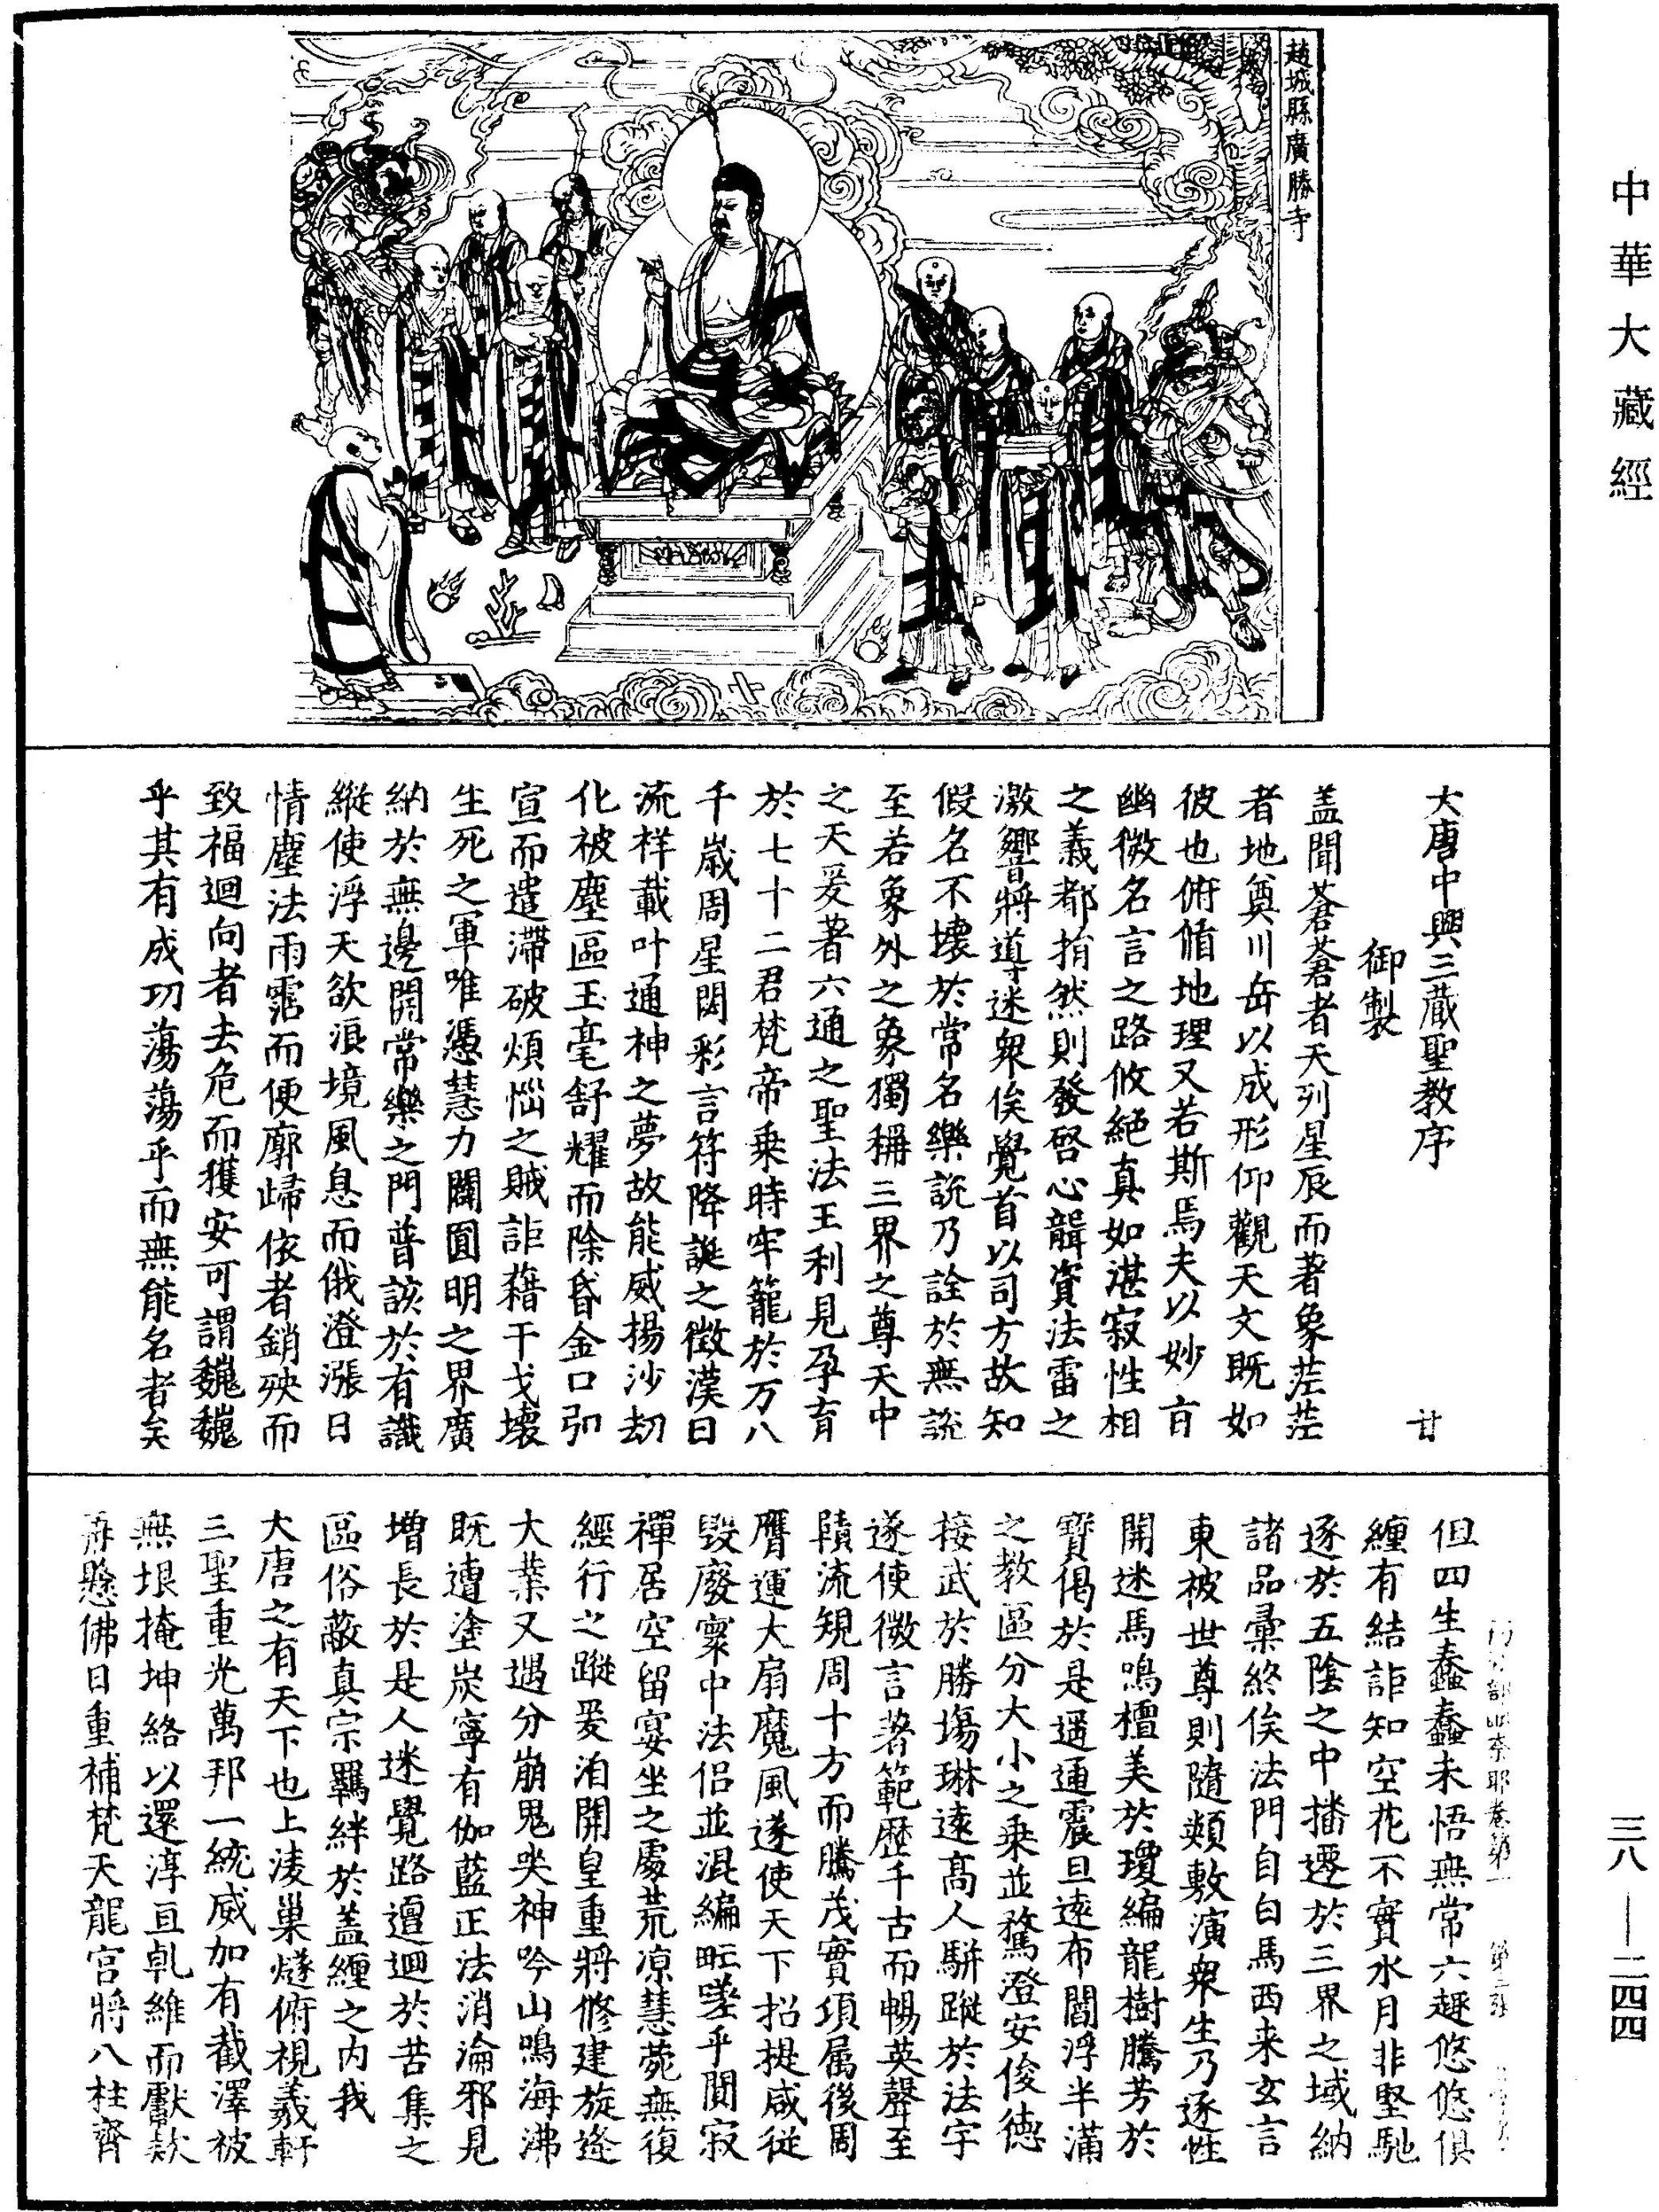 中華大藏經
趙城縣廣勝寺
大唐中興三藏聖教序 甘
御製
盖聞蒼蒼者天列星辰而著象茫茫
者地奠川岳以成形仰觀天文既如
彼也俯脩地理又若斯焉夫以妙音
幽微名言之路攸絕真如湛寂性相
之義都捐然則發啓心韻資法雷之
激響將導迷衆俟覺首以司方故知
假名不壞於常名樂說乃詮於無說
至若象外之象獨稱三界之尊天中
之天爰著六通之聖法王利見孕育
於七十二君梵帝乘時牢籠於万八
千歲周星閟彩言符降誕之徵漢日
流祥載叶通神之夢故能威揚沙劫
化被塵區玉毫舒耀而除昏金口弘
宣而遣滯破煩惱之賊詎藉干戈壞
生死之軍唯憑慧力闢圓明之界廣
納於無邊開常樂之門普該於有識
縱使浮天欲浪境風息而俄澄漲日
情塵法雨霑而便廓歸依者銷殃而
致福迴向者去危而獲安可謂巍巍
乎其有成功蕩蕩乎而無能名者矣
但四生蠢蠢未悟無常六趣悠悠俱
纏有結詎知空花不實水月非堅馳
逐於五陰之中播遷於三界之域納
諸品彙終俟法門自白馬西来玄言
東被世尊則隨類敷演衆生乃逐性
開迷馬鳴擅美於瓊編龍樹騰芳於
寶偈於是遐通震旦遠布閻浮半滿
之教區分大小之乗並騖澄安俊德
接武於勝場琳遠高人騈蹤於法宇
遂使微言著範歷千古而暢英聲至
賾流規周十方而騰茂實頃属後周
膺運大扇魔風遂使天下招提咸從
毀廢寰中法侣並混編甿嗟乎閴寂
禪居空留宴坐之處荒凉慧菀無復
經行之蹤爰洎開皇重將修建旋逄
大業又遇分崩鬼哭神吟山鳴海沸
既遭塗炭寧有伽藍正法消淪邪見
增長於是人迷覺路邅迴於苦集之
區俗蔽真宗羈絆於盖纏之內我
大唐之有天下也上淩巢燧俯視羲軒
三聖重光萬邦一統威加有截澤被
無垠掩坤絡以還淳亘乹維而獻款
再懸佛日重補梵天龍宫將八柱齊
三八——二四四